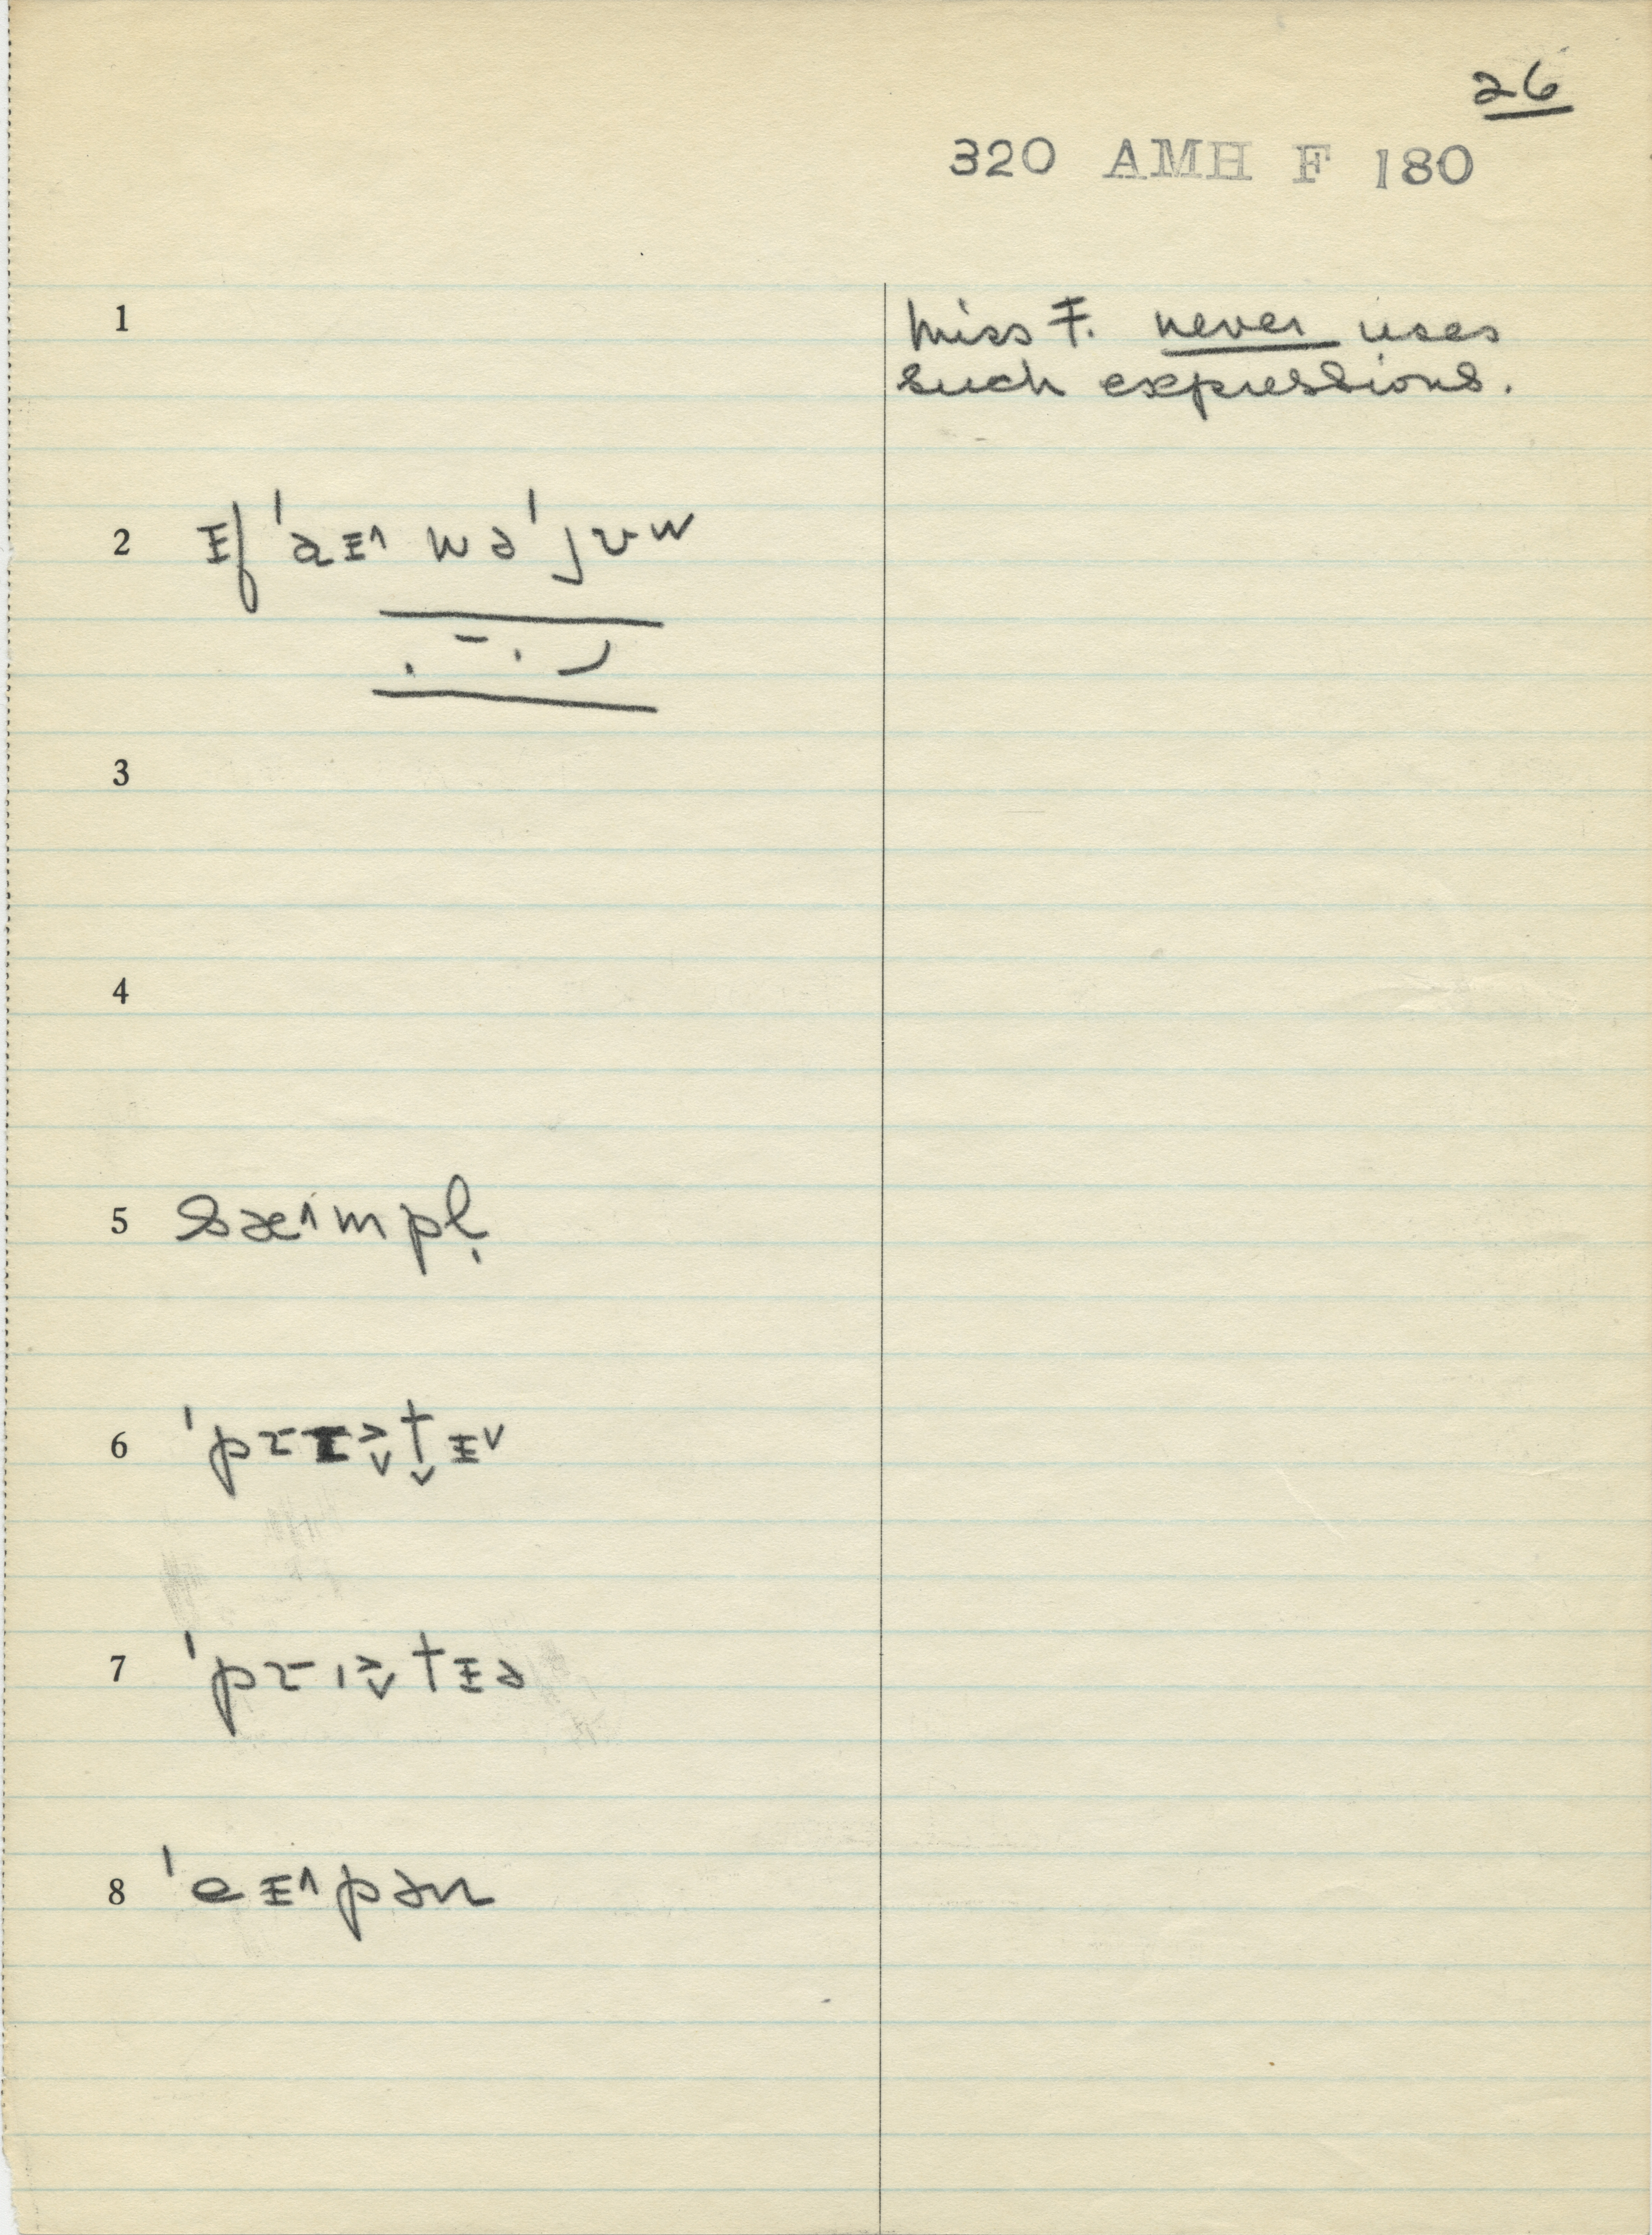 26
320 AMH F 180
1 Miss F. never uses
such expressions.
2 ɪf ˈaɪ˄ wəˈjʊw
3
4
5 sæ˄mpl̩
6
7
8 ˈeɪ˄pən